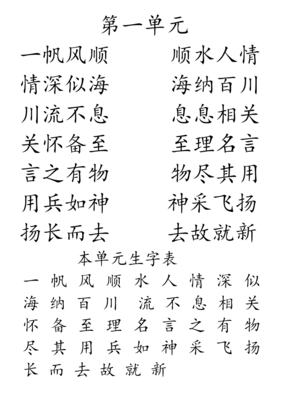 第一单元
一帆风顺 顺水人情
情深似海 海纳百川
川流不息 息息相关
关怀备至 至理名言
言之有物 物尽其用
用兵如神 神采飞扬
扬长而去 去故就新
本单元生字表
一 帆 风 顺 水 人 情 深 似
海 纳 百 川 流 不 息 相 关
怀 备 至 理 名 言 之 有 物
尽 其 用 兵 如 神 采 飞 扬
长 而 去 故 就 新